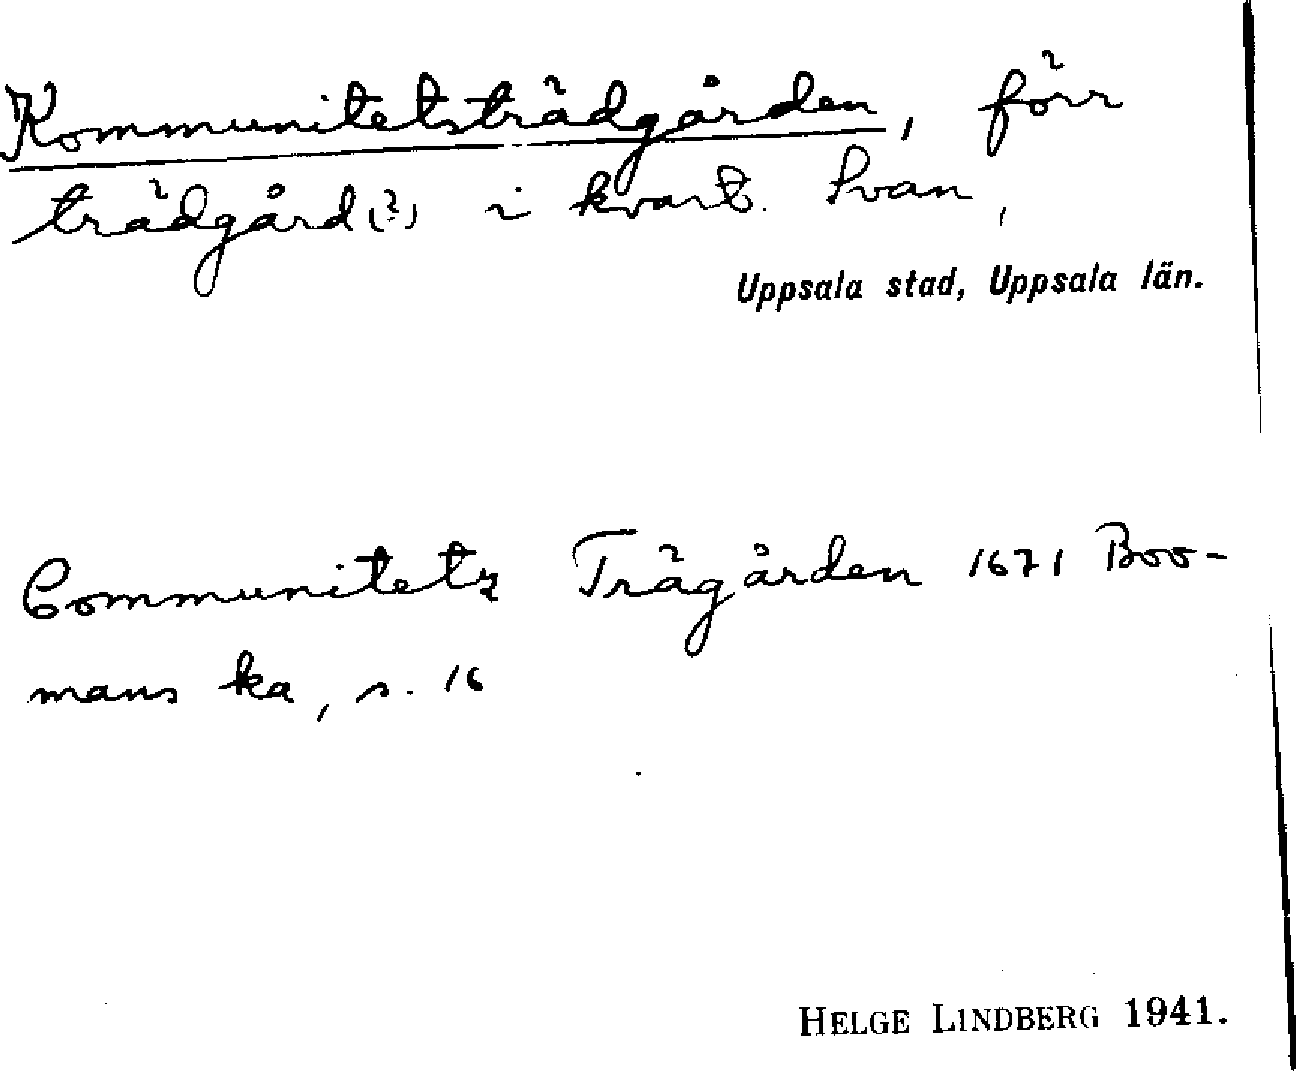 Kommunitetsträdgården, förr
trädgård(?) i kvart. Svan,
Uppsala stad, Uppsala län.
Communitetz Trägården 1671 Boo-
mans ka, s. 16
HELGE LINDBERG 1941.